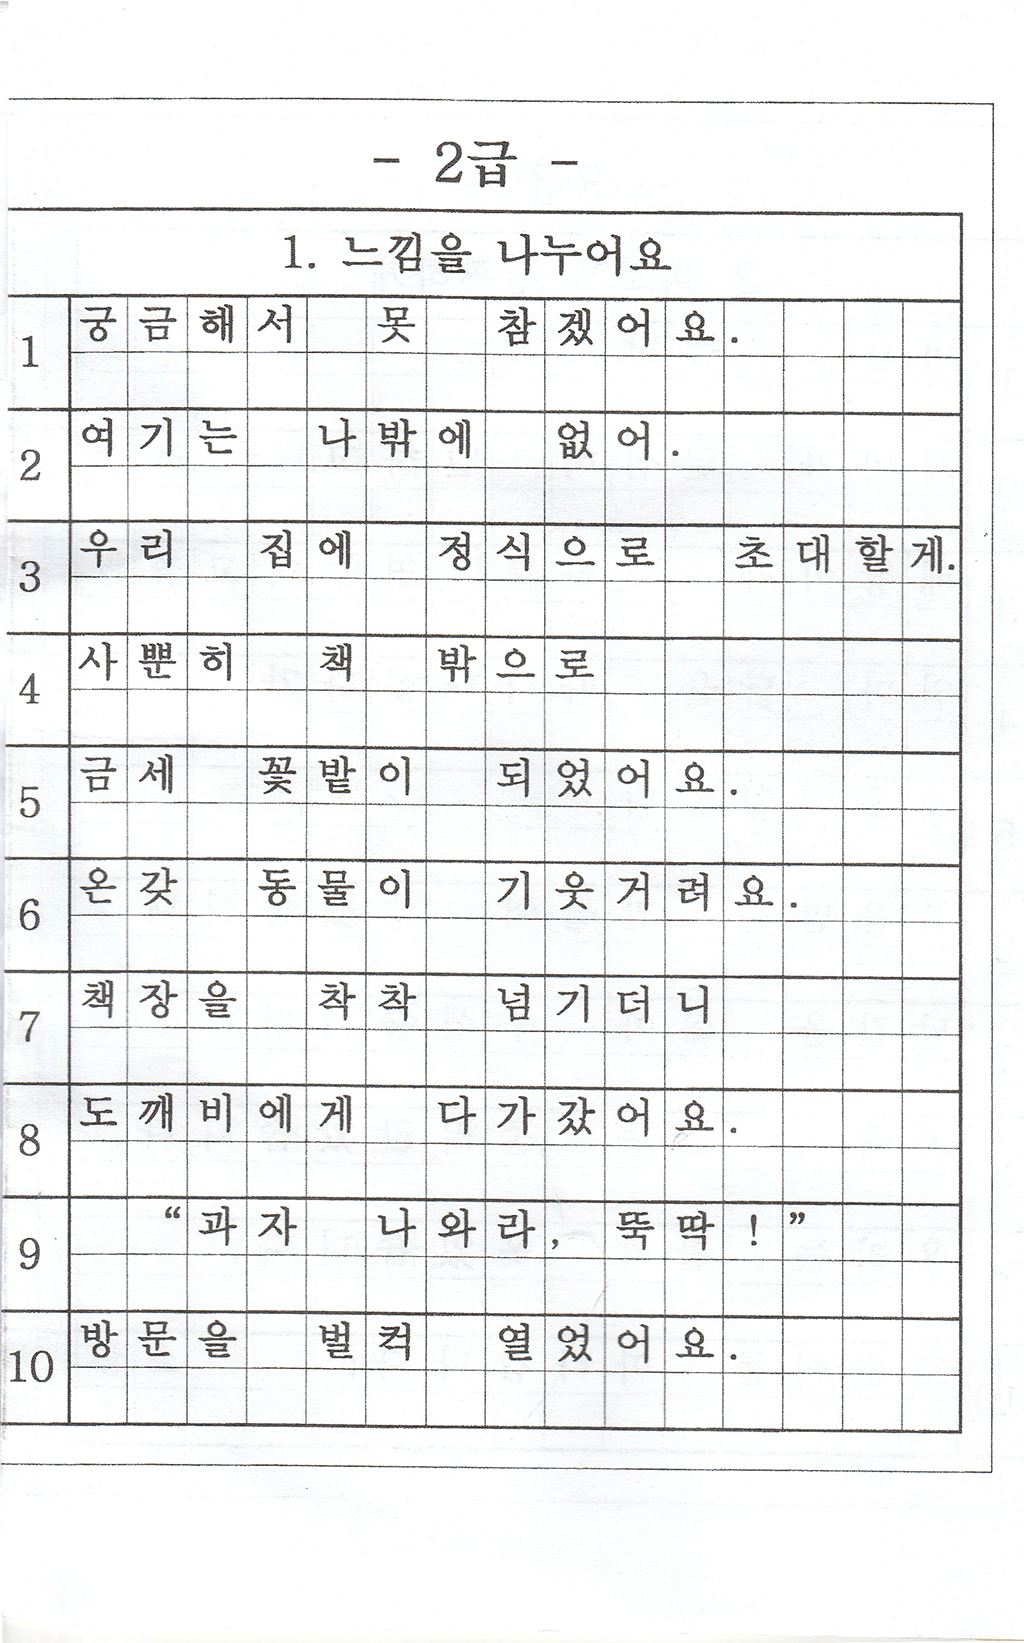 - 2급 -
1. 느낌을 나누어요
1 궁금해서 못 참겠어요.
2 여기는 나밖에 없어.
3 우리 집에 정식으로 초대할게.
4 사뿐히 책 밖으로
5 금세 꽃밭이 되었어요.
6 온갖 동물이 기웃거려요.
7 책장을 착착 넘기더니
8 도깨비에게 다가갔어요.
9 “과자 나와라, 뚝딱!”
10 방문을 벌컥 열었어요.